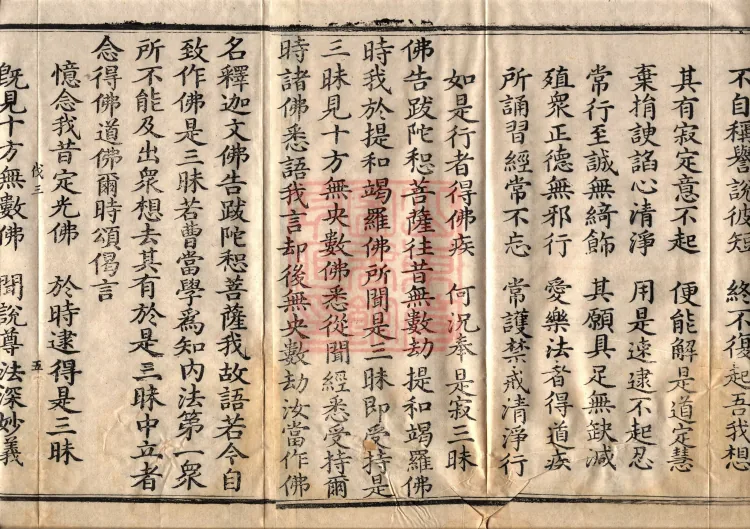 不自稱譽說彼短　終不復起吾我想
其有寂定意不起　便能解是道定慧
棄捐諛諂心清淨　用是速逮不起忍
常行至誠無綺飾　其願具足無缺減
殖衆正德無邪行　愛樂法者得道疾
所誦習經常不忘　常護禁戒清淨行
如是行者得佛疾　何況奉是寂三昧
佛告跋陀惒菩薩往昔無數劫提和竭羅佛
時我於提和竭羅佛所聞是三昧即受持是
三昧見十方無央數佛悉從聞經悉受持爾
時諸佛悉語我言却後無央數劫汝當作佛
名釋迦文佛告跋陀惒菩薩我故語若今自
致作佛是三昧若曹當學爲知内法第一衆
所不能及出衆想去其有於是三昧中立者
念得佛道佛爾時頌偈言
憶念我昔定光佛　於時逮得是三昧
伐三　五
既見十方無數佛　聞說尊法深妙義